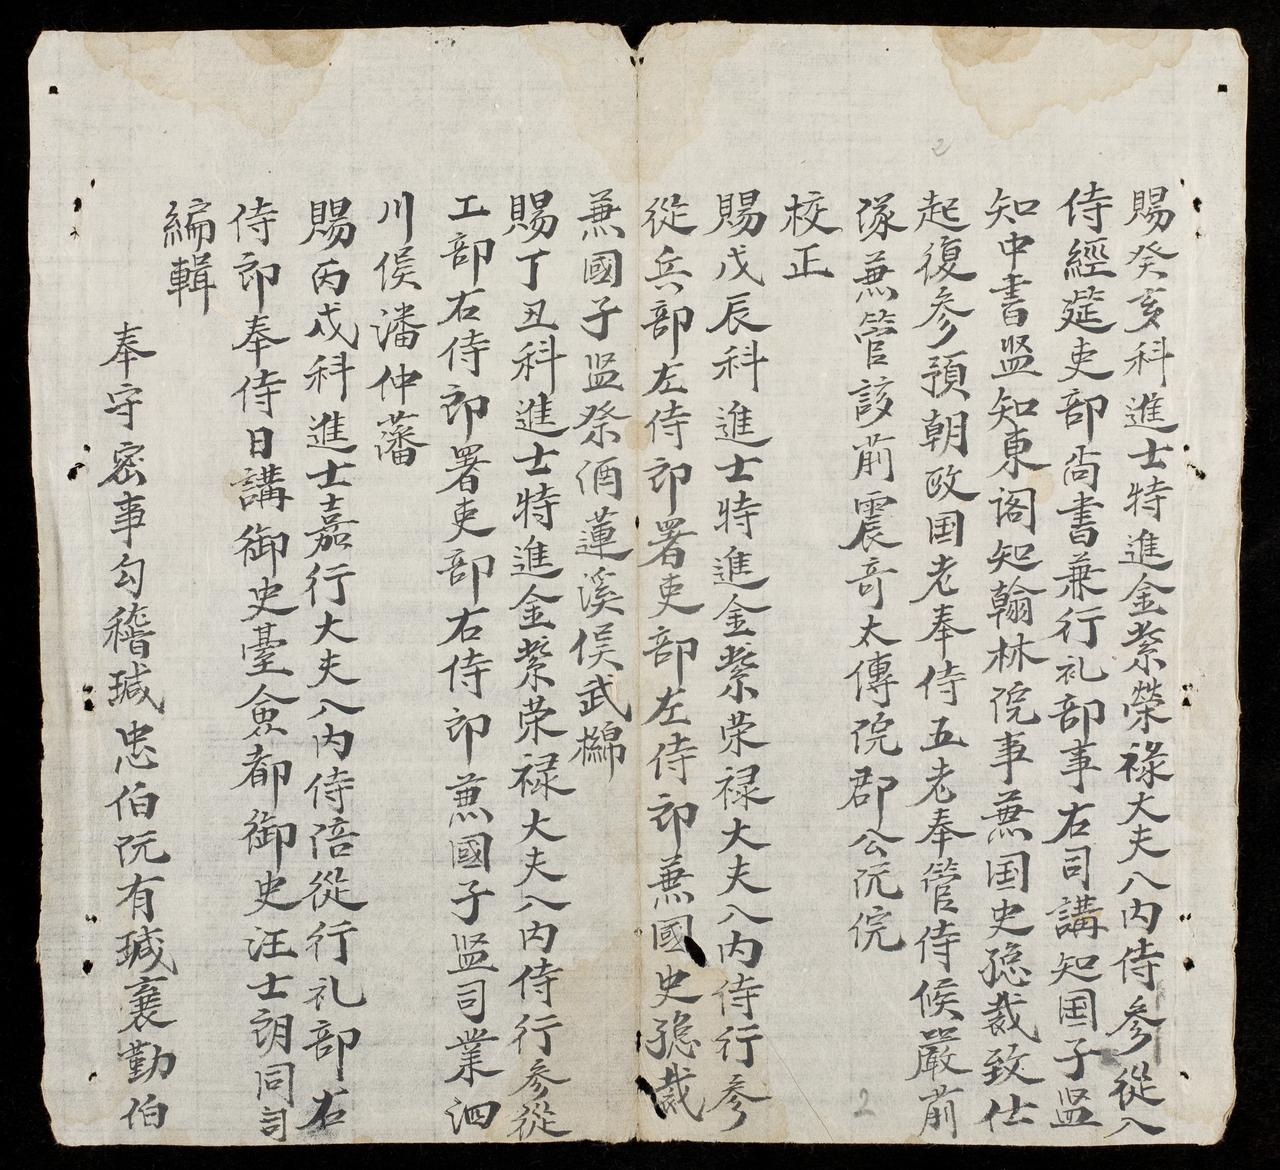 賜癸亥科進士特進金紫榮祿大夫入内侍参從入
侍經筵吏部尚書兼行礼部事右司講知国子监
知中書监知東阁知翰林院事兼国史總裁致仕
起復参預朝政国老奉侍五老奉管侍候嚴前
隊兼管該前震奇太傳院郡公阮俒
校正
賜戊辰科進士特進金紫荣禄大夫入内侍行参
從兵部左侍郎署吏部左侍郎兼國史總裁
兼國子监祭酒蓮溪侯武檰
賜丁丑科進士特進金紫荣禄大夫入内侍行参從
工部右侍郎署吏部右侍郎兼國子监司業泗
川侯潘仲藩
賜丙戌科進士嘉行大夫入内侍陪從行礼部右
侍郎奉侍日講御史臺僉都御史汪士朗同司
編輯
奉守密事勾稽瑊忠伯阮有瑊襄勤伯
2
2